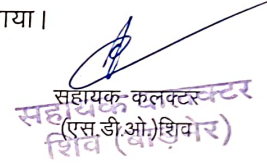 गया।
सहायक कलक्टर
(एस.डी.ओ.)शिव
सहायक कलक्टर
शिव (बाड़मेर)